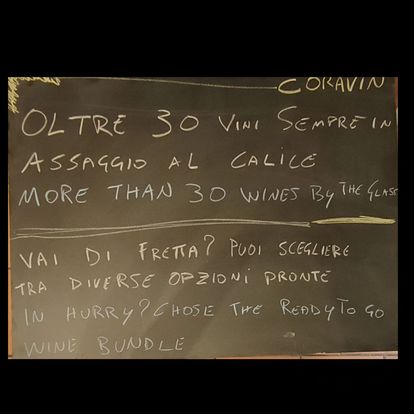 CORAVIN
OLTRE 30 VINI SEMPRE IN
ASSAGGIO AL CALICE
MORE THAN 30 WINES BY THE GLASS
VAI DI FRETTA? PUOI SCEGLIERE
TRA DIVERSE OPZIONI PRONTE
IN HURRY? CHOSE THE READY TO GO
WINE BUNDLE